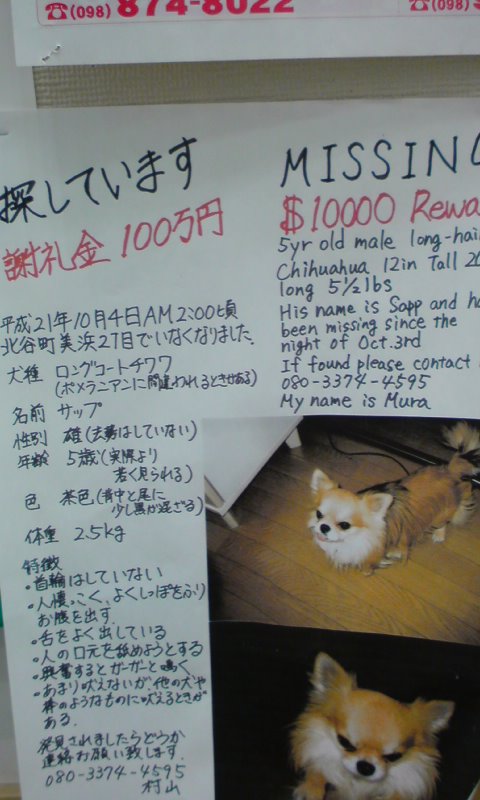 ☎(098) 874-8022
☎(098)
探しています
謝礼金 100万円
平成21年10月4日AM2:00頃
北谷町美浜2丁目でいなくなりました.
犬種 ロングコートチワワ
(ポメラニアンに間違われるときもある)
名前 サップ
性別 雄(去勢はしていない)
年齢 5歳(実際より
若く見られる)
色 茶色(背中と尾に
少し黒が混ざる)
体重 2.5kg
特徴
・首輪はしていない
・人懐っこく、よくしっぽをふり
お腹を出す.
・舌をよく出している
・人の口元を舐めようとする
・興奮するとガーガーと鳴く
・あまり吠えないが、他の犬や
棒のようなものに吠えるときが
ある.
発見されましたらどうか
連絡お願い致します.
080-3374-4595
村山
MISSING
$10000 Rewa
5yr old male long-hai
Chihuahua 12in Tall 20
long 5½ lbs
His name is Sapp and ha
been missing since the
night of Oct.3rd
If found please contact
080-3374-4595
My name is Mura